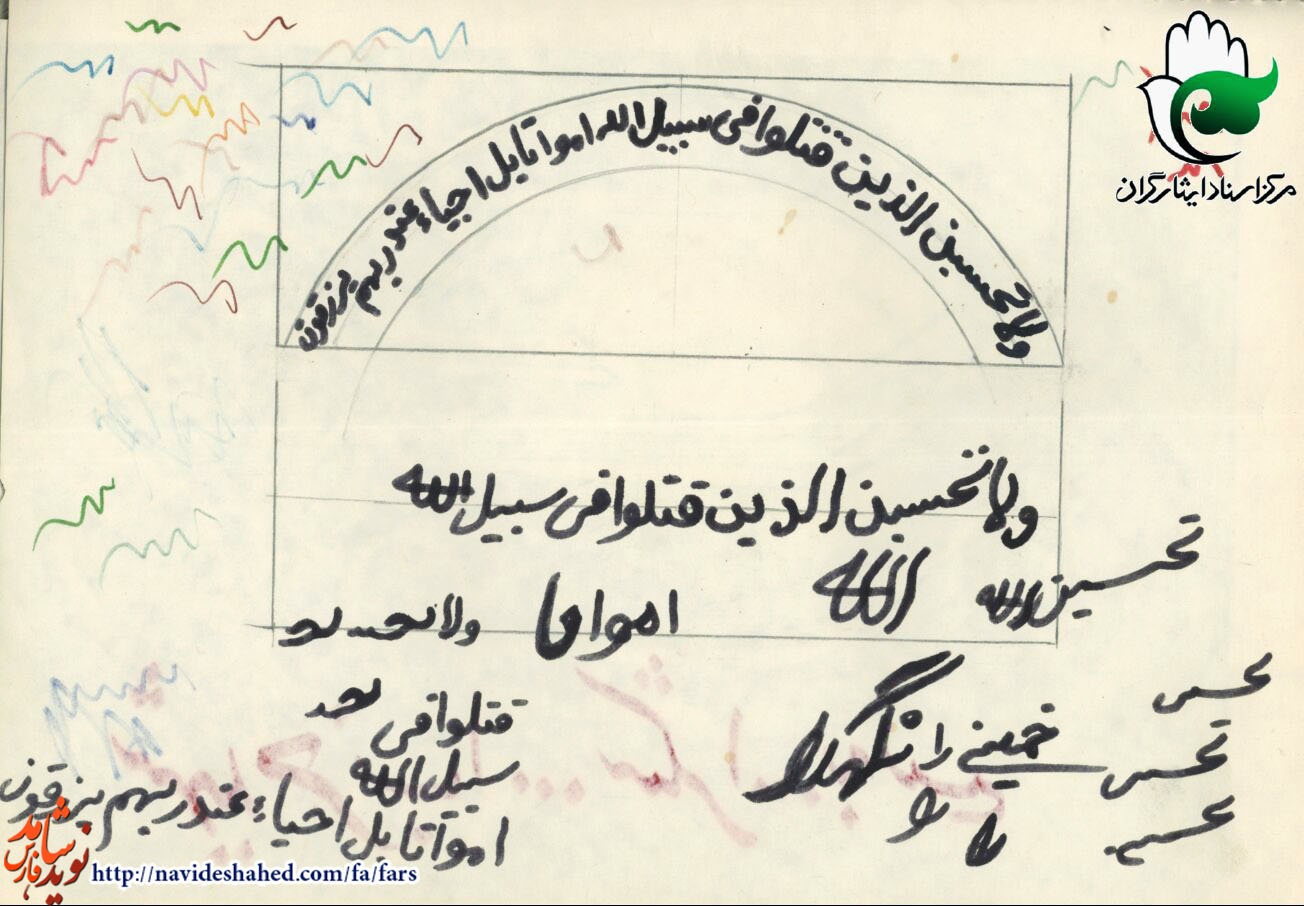 مرکز اسناد ایثارگران
ولا تحسبن الذین قتلوا فی سبیل الله امواتا بل احیاء عند ربهم یرزقون
ولا تحسبن الذین قتلوا فی سبیل الله
تحسبن الله
الله
امواتا
ولا تحسد
قتلوا فی
سبیل الله
امواتا بل احیاء عند ربهم یرزقون
خمینی را نگهدار
نوید شاهد
فارس
http://navideshahed.com/fa/fars